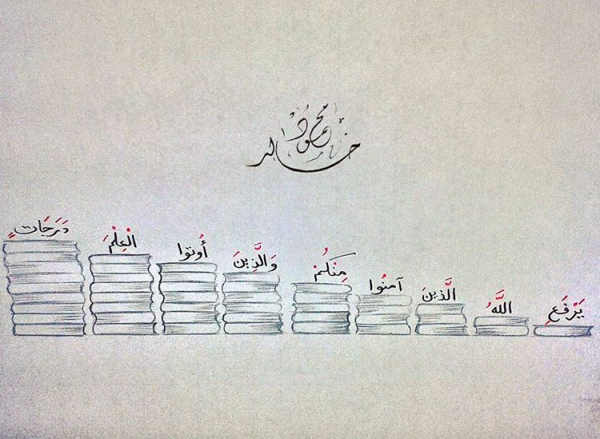 محمود خالد
يَرْفَعِ اللَّهُ الَّذِينَ آمَنُوا مِنْكُمْ وَالَّذِينَ أُوتُوا الْعِلْمَ دَرَجَاتٍ